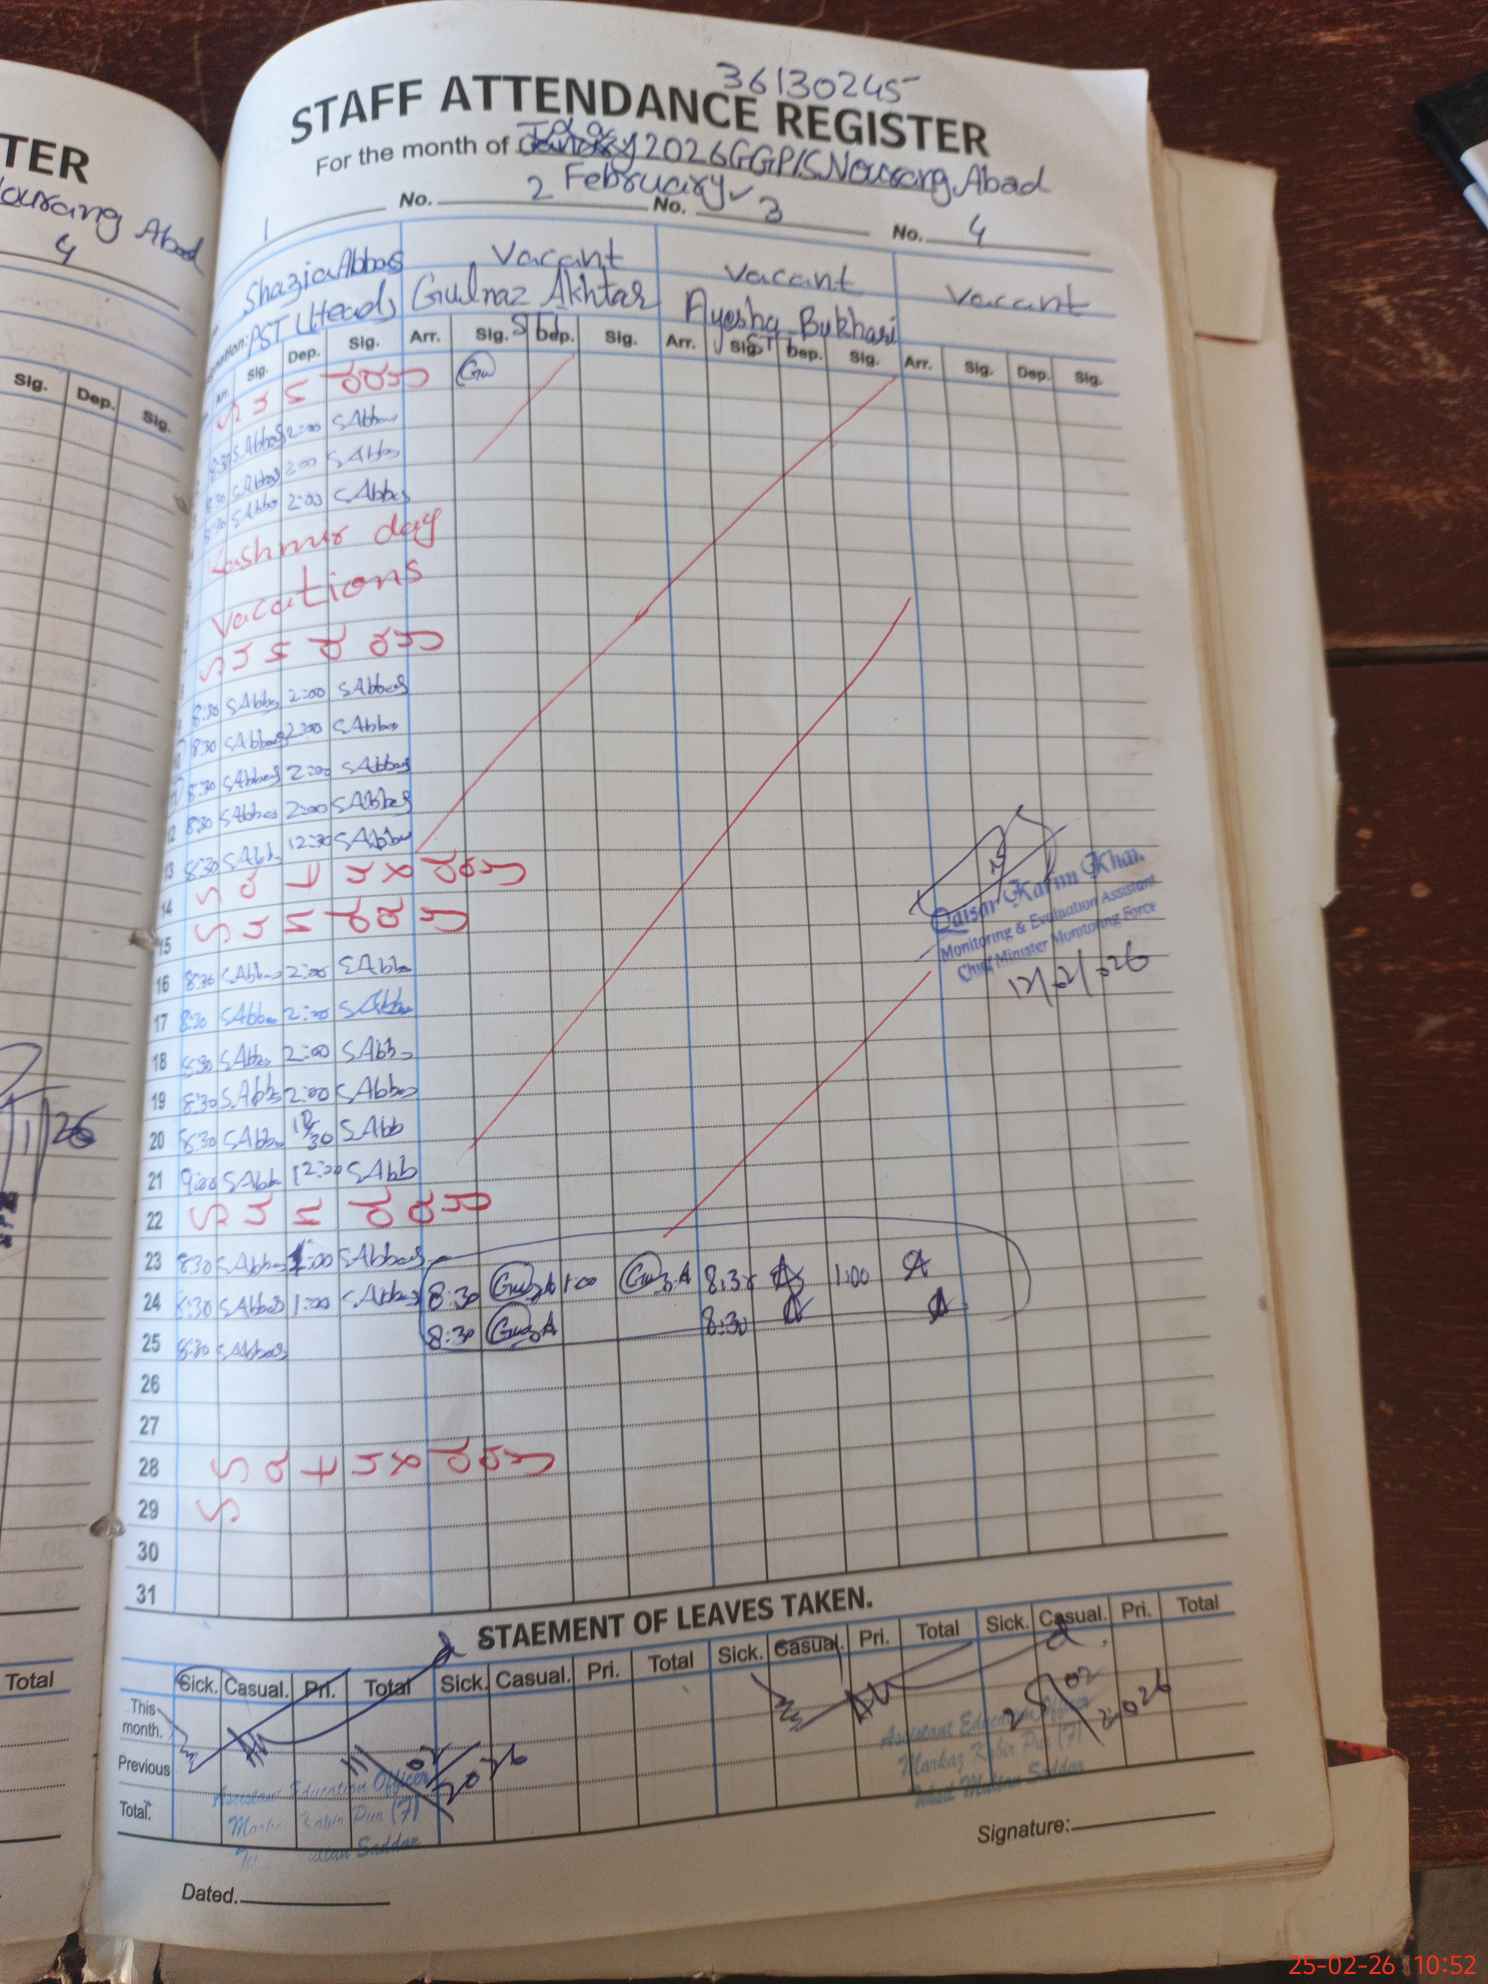 TER
ourang Abad
4
Sig. Dep. Sig.
Total
36130245
STAFF ATTENDANCE REGISTER
For the month of 2026 GGP/S Nourang Abad
February
1 No. 2 No. 3 No. 4
Shazia Abbas Vacant Vacant Vacant
PST (Head) Gulnaz Akhtar Ayesha Bukhari
Arr. Sig. Dep. Sig. Arr. Sig. Dep. Sig. Arr. Sig. Dep. Sig. Arr. Sig. Dep. Sig.
Sunday
8:30 SAbbas 2:00 SAbbas
8:30 SAbbas 2:00 SAbbas
8:30 SAbbas 2:00 SAbbas
Kashmir day
Vacations
Sunday
8:30 SAbbas 2:00 SAbbas
8:30 SAbbas 2:00 SAbbas
8:30 SAbbas 2:00 SAbbas
12 8:30 SAbbas 2:00 SAbbas
13 8:30 SAbb 12:30 SAbbas
14 Saturday
15 Sunday
16 8:30 SAbbas 2:00 SAbbas
17 8:30 SAbbas 2:00 SAbbas
18 8:30 SAbbas 2:00 SAbbas
19 8:30 SAbbas 2:00 SAbbas
20 8:30 SAbbas 12/30 SAbb
21 9:00 SAbb 12:00 SAbb
22 Sunday
23 8:30 SAbbas 1:00 SAbbas
24 8:30 SAbbas 1:00 SAbbas 8:30 GuzA 1:00 GuzA 8:30 A 1:00 A
25 8:30 SAbbas 8:30 GuzA 8:30 A A
26
27
28 Saturday
29 S
30
31
Qaisar Karim Khan
Monitoring & Evaluation Assistant
Chief Minister Monitoring Force
12/02/026
STAEMENT OF LEAVES TAKEN.
Sick. Casual. Pri. Total Sick. Casual. Pri. Total Sick. Casual. Pri. Total Sick. Casual. Pri. Total
This month.
Previous
Total.
Assistant Education Officer
11/02/2026
Assistant Education Officer
25/02/2026
Signature:
Dated.
25-02-26 10:52